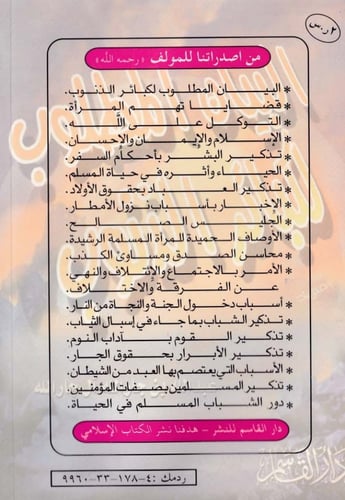 ٢ ر.س
من اصداراتنا للمؤلف «رحمه الله»
* البيان المطلوب لكبائر الذنوب.
* قضايا تهم المرأة.
* التوكل على الله.
* الإسلام والإيمان والإحسان.
* تذكير البشر بأحكام السفر.
* الحياء وأثره في حياة المسلم.
* تذكير العباد بحقوق الأولاد.
* الإخبار بأسباب نزول الأمطار.
* الجليس الصالح.
* الأوصاف الحميدة للمرأة المسلمة الرشيدة.
* محاسن الصدق ومساوئ الكذب.
* الأمر بالاجتماع والإئتلاف والنهي
عن الفرقة والاختلاف.
* أسباب دخول الجنة والنجاة من النار.
* تذكير الشباب بما جاء في إسبال الثياب.
* تذكير القوم بآداب النوم.
* تذكير الأبرار بحقوق الجار.
* الأسباب التي يعتصم بها العبد من الشيطان.
* تذكير المسلمين بصفات المؤمنين.
* دور الشباب المسلم في الحياة.
دار القاسم للنشر - هدفنا نشر الكتاب الإسلامي
ردمك: ٤-١٧٨-٣٣-٩٩٦٠
دار القاسم